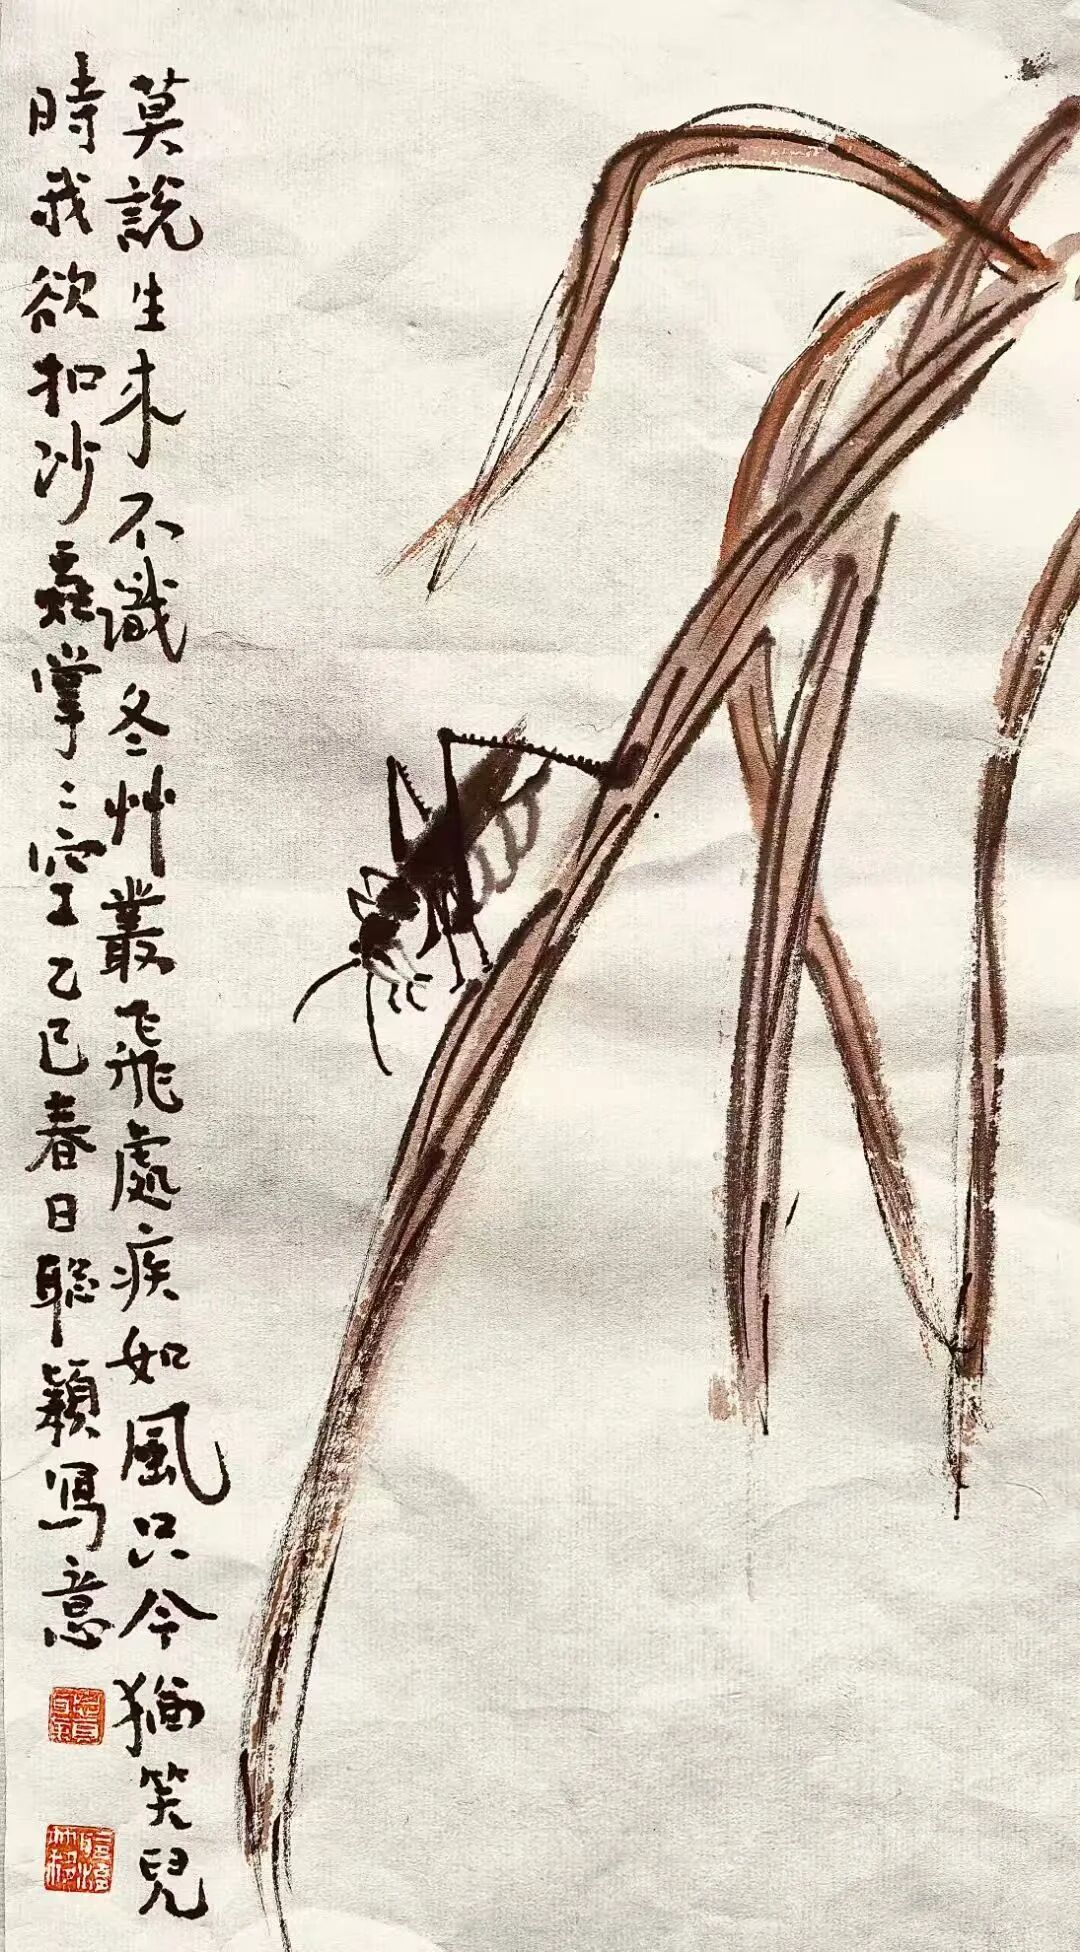 莫說生來不識冬艸叢飛處疾如風只今猶笑兒
時我欲扣沙蟲掌〻空乙巳春日聪颖寫意